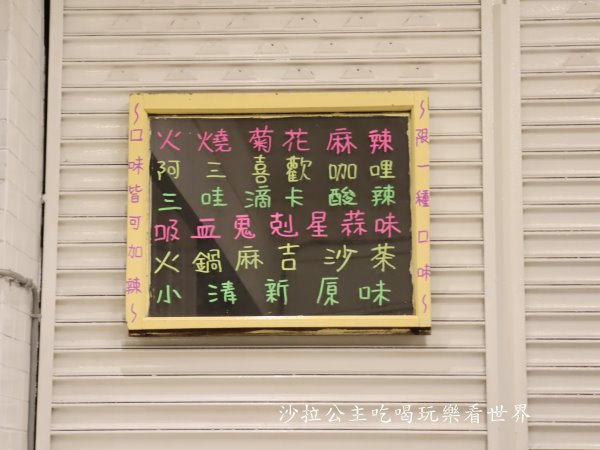 火燒菊花麻辣
阿三喜歡咖哩
三哇滴卡酸辣
吸血鬼剋星蒜味
火鍋麻吉沙茶
小清新原味
~口味皆可加辣~
~限一種口味~
沙拉公主吃喝玩樂看世界